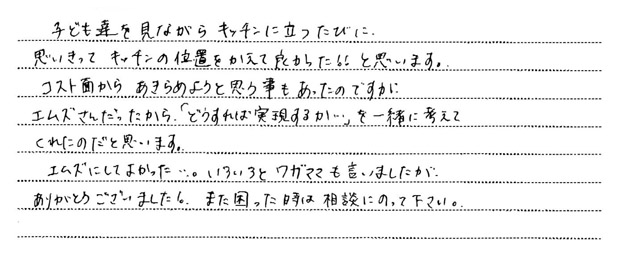 子ども達を見ながら キッチンに立つたびに、
思いきって キッチンの位置をかえて良かった!! と思います。
コスト面から あきらめようと思う事も あったのですが
エムズさんだったから、「どうすれば実現するか…」を一緒に考えて
くれたのだと思います。
エムズにしてよかった…。いろいろと ワガママも言いましたが、
ありがとうございました!。また困った時は 相談にのって下さい。